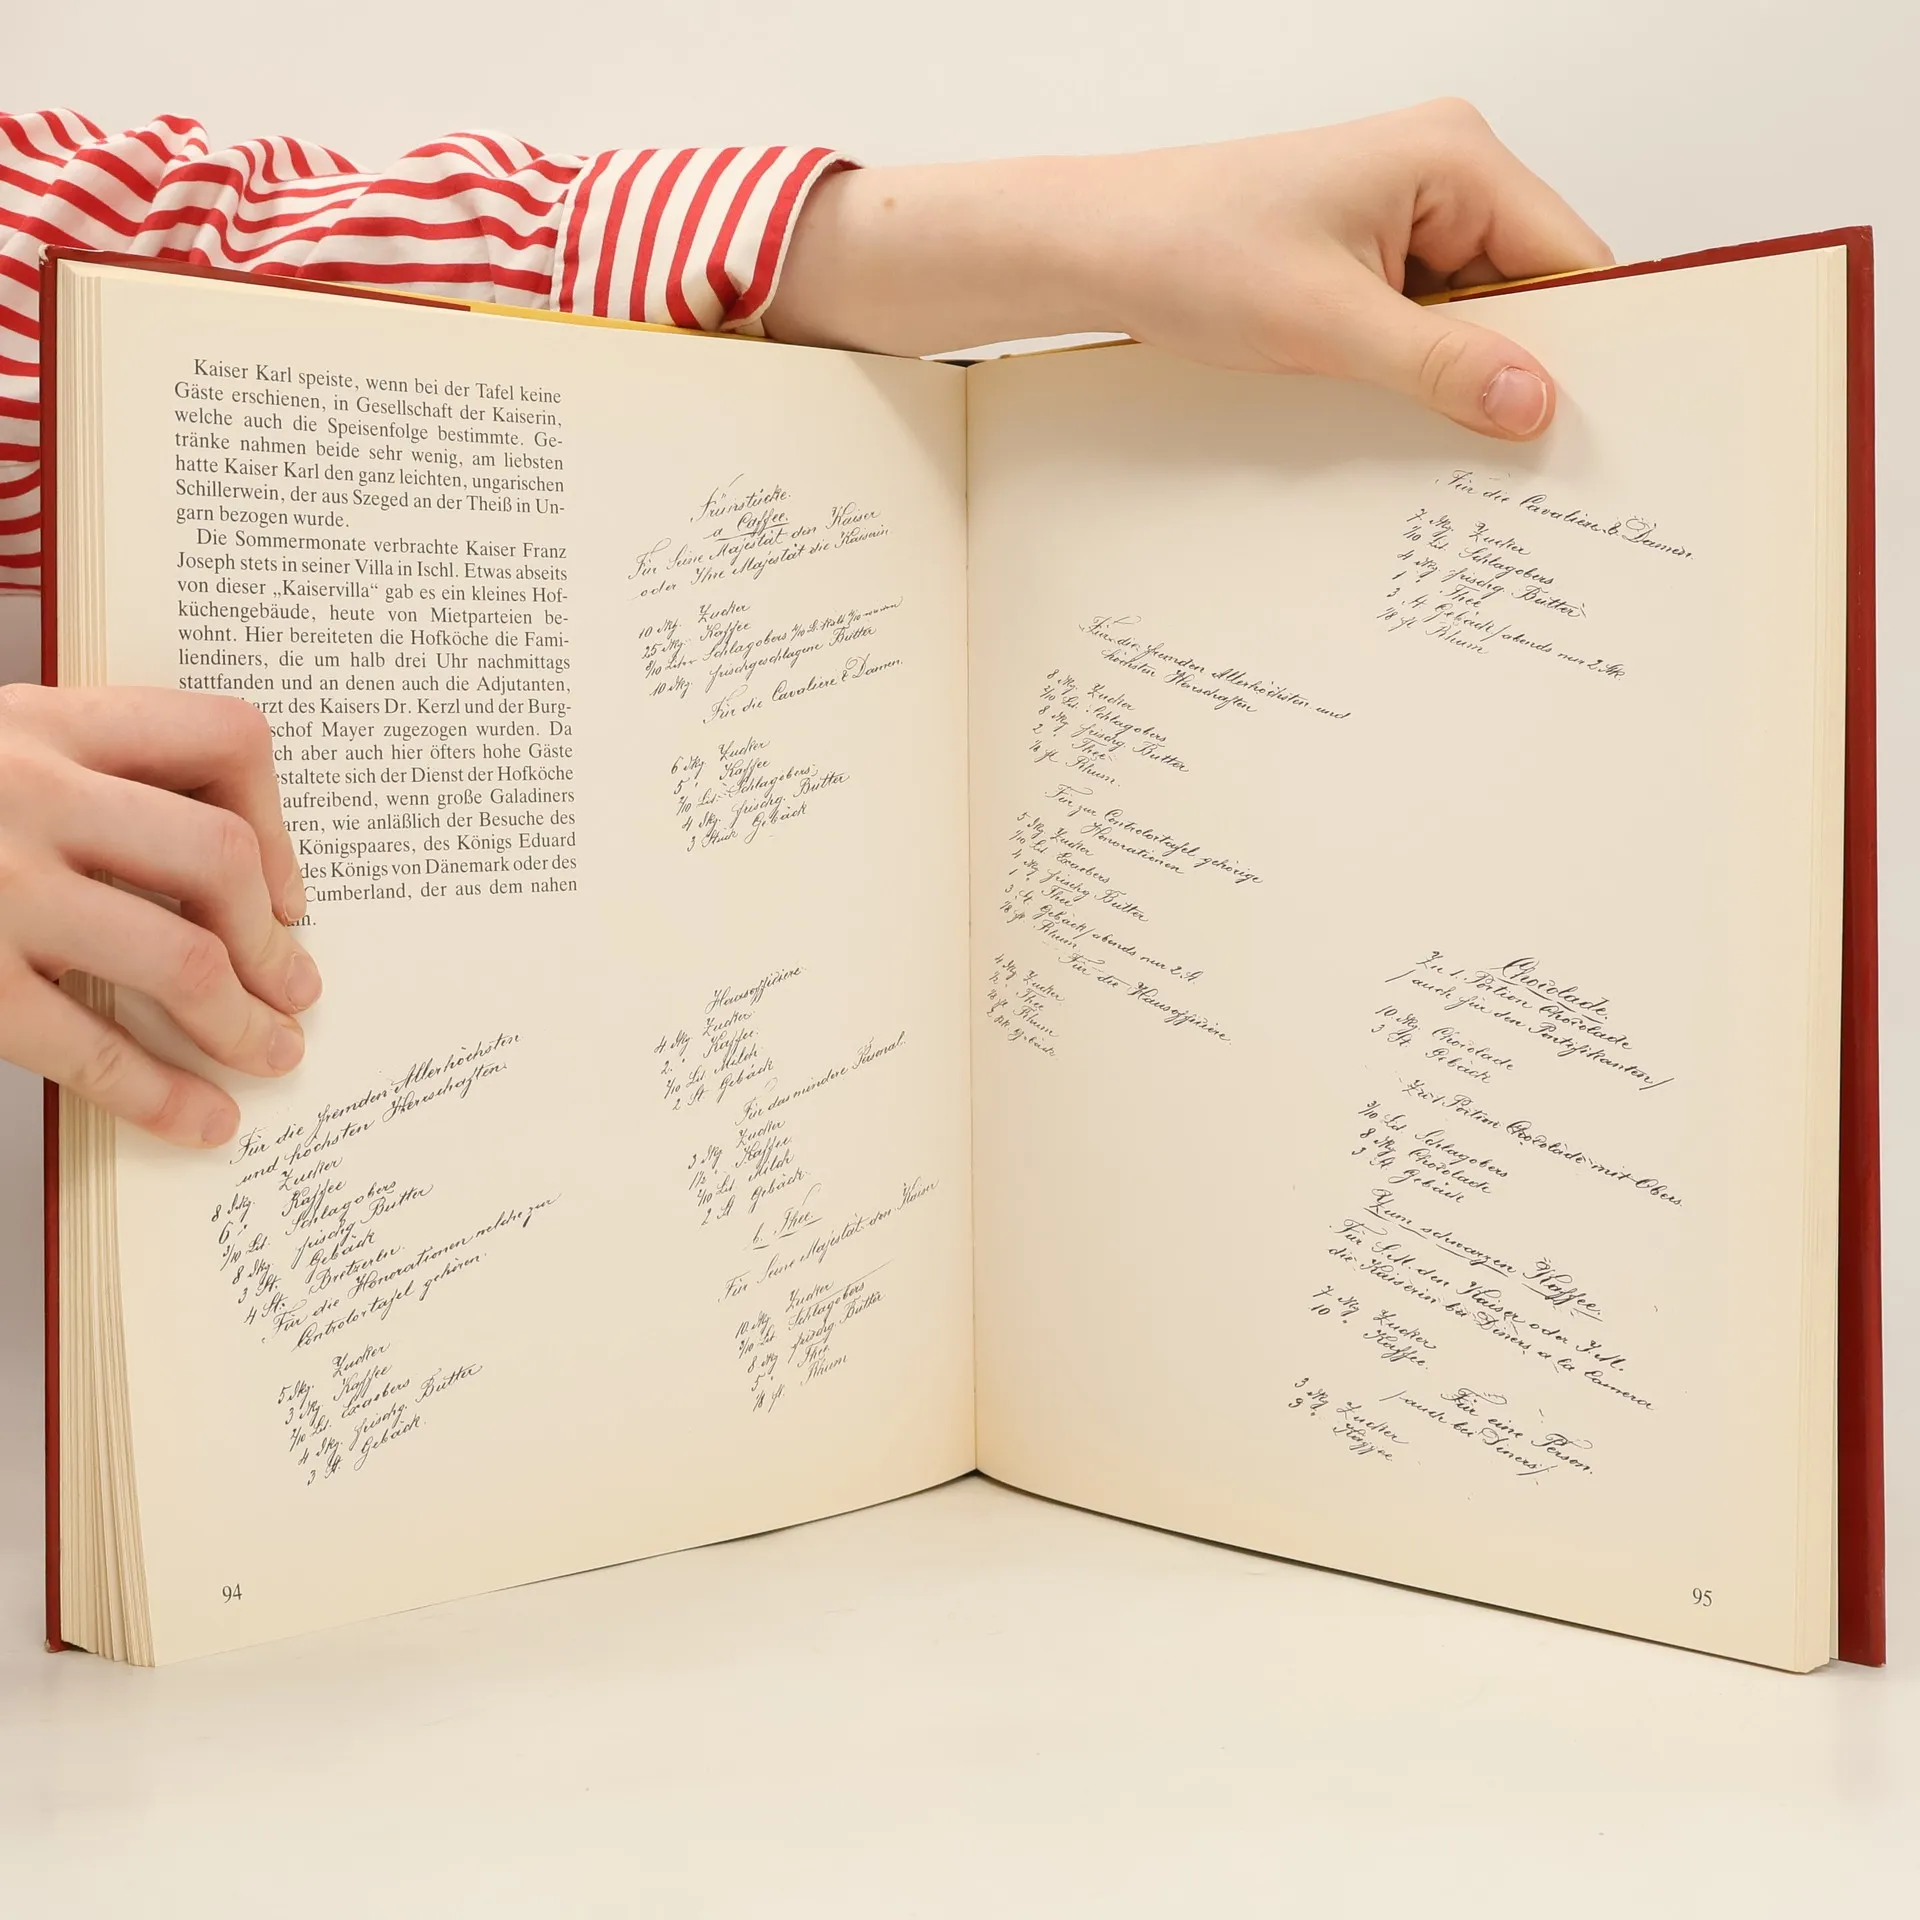 Kaiser Karl speiste, wenn bei der Tafel keine
Gäste erschienen, in Gesellschaft der Kaiserin,
welche auch die Speisenfolge bestimmte. Ge-
tränke nahmen beide sehr wenig, am liebsten
hatte Kaiser Karl den ganz leichten, ungarischen
Schillerwein, der aus Szeged an der Theiß in Un-
garn bezogen wurde.
Die Sommermonate verbrachte Kaiser Franz
Joseph stets in seiner Villa in Ischl. Etwas abseits
von dieser „Kaiservilla“ gab es ein kleines Hof-
küchengebäude, heute von Mietparteien be-
wohnt. Hier bereiteten die Hofköche die Fami-
liendiners, die um halb drei Uhr nachmittags
stattfanden und an denen auch die Adjutanten,
arzt des Kaisers Dr. Kerzl und der Burg-
schof Mayer zugezogen wurden. Da
ch aber auch hier öfters hohe Gäste
estaltete sich der Dienst der Hofköche
aufreibend, wenn große Galadiners
aren, wie anläßlich der Besuche des
Königspaares, des Königs Eduard
des Königs von Dänemark oder des
Cumberland, der aus dem nahen
Für die fremden Allerhöchsten
und höchsten Herrschaften.
8 Dkg. Zucker
6 " Kaffee
3/10 Lit. Schlagobers
8 Dkg. frischg. Butter
3 St. Gebäck
4 St. Bretzerln.
Für die Honorationen welche zur
Controlortafel gehören.
5 Dkg. Zucker
3 Dkg. Kaffee
2/10 Lit. Obers
4 Dkg. frischg. Butter
3 St. Gebäck.
Früstücke.
a Caffee.
Für Seine Majestät den Kaiser
oder Ihre Majestät die Kaiserin.
10 Dkg. Zucker
25 Dkg. Kaffee
8/10 Liter Schlagobers
10 Dkg. frischgeschlagene Butter
Für die Cavaliere & Damen.
6 Dkg. Zucker
5 " Kaffee
2/10 Lit. Schlagobers
4 Dkg. frischg. Butter
3 Stück Gebäck
Hausofficiere.
4 Dkg Zucker
2 " Kaffee.
2/10 Lit Milch
2 St Gebäck
Für das mindere Personal.
3 Dkg. Zucker
1½ " Kaffee
2/10 Lit. Milch
2 St Gebäck.
b. Thee.
Für Seine Majestät den Kaiser
10 Dkg. Zucker
3/10 Lit Schlagobers
8 Dkg frischg. Butter
5 " Thee
1/8 fl. Rhum
94
Für die fremden Allerhöchsten und
höchsten Herschaften
8 Dkg. Zucker
2/10 Lit. Schlagobers
8 Dkg frischg Butter
2 " Thee
1/8 fl Rhum.
Für zur Controlortafel gehörige
Honorationen
5 Dkg Zucker
1/10 Lit Obers
4 Dkg frischg Butter
1 " Thee
3 St. Gebäck/abends nur 2 St.
1/8 fl. Rhum
Für die Hausofficiere.
4 Dkg Zucker
½ " Thee
1/8 fl Rhum
2 Stk Gebäck
Für die Cavaliere & Damen.
7 Dkg. Zucker
1/10 Lit. Schlagobers
4 Dkg frischg. Butter
1 " Thee
3 St Gebäck/abends nur 2 Stk.
1/8 fl Rhum
Chocolade.
Zu 1. Portion Chocolade
/auch für den Pontifikanten/
10 Dkg. Chocolade
3 St Gebäck
Zu 1 Portion Chocolade mit Obers.
3/10 Lit Schlagobers
8 Dkg Chocolade
3 St Gebäck
Zum schwarzen Kaffee.
Für S.M. den Kaiser oder I.M.
die Kaiserin bei Diners a la Camera
7 Dkg Zucker
10 " Kaffee.
Für eine Person.
/auch bei Diners/.
3 Dkg Zucker
3 " Kaffee
95